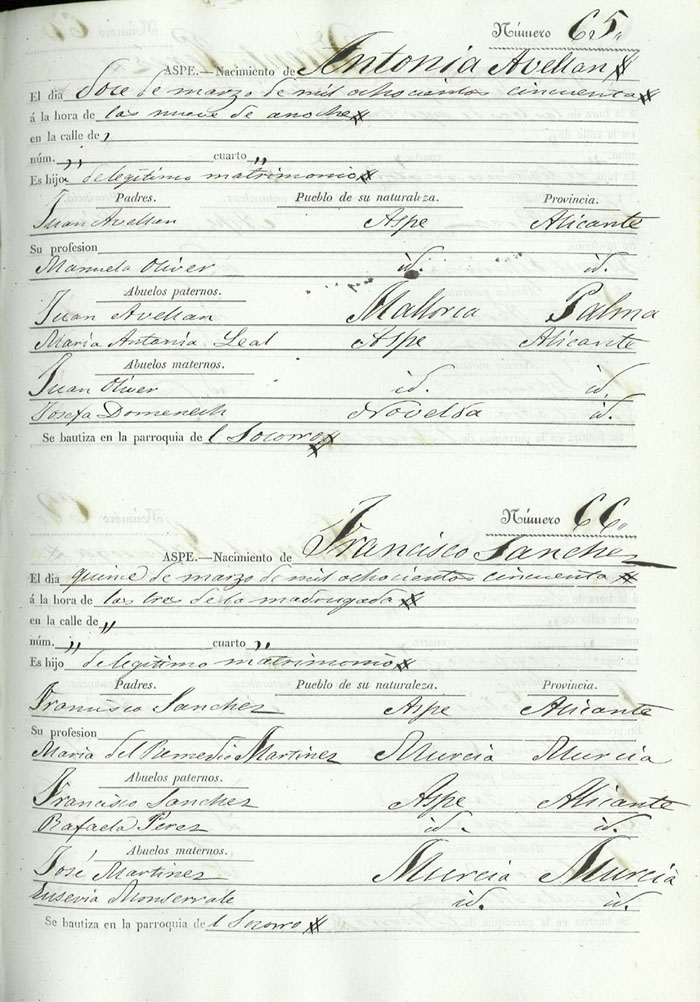 Número 65.
ASPE.—Nacimiento de Antonia Avellan
El dia dose de marzo de mil ochocientos cincuenta
á la hora de las nueve de anoche
en la calle de „
núm. „ cuarto „
Es hija de legitimo matrimonio
Padres. Pueblo de su naturaleza. Provincia.
Juan Avellan Aspe Alicante
Su profesion
Manuela Oliver id. id.
Abuelos paternos.
Juan Avellan Mallorca Palma
Maria Antonia Leal Aspe Alicante
Abuelos maternos.
Juan Oliver id. id.
Josefa Domenech Novelda id.
Se bautiza en la parroquia de l Socorro
Número 66.
ASPE.—Nacimiento de Francisco Sanchez
El dia quince de marzo de mil ochocientos cincuenta
á la hora de las tres de la madrugada
en la calle de „
núm. „ cuarto „
Es hijo de legitimo matrimonio
Padres. Pueblo de su naturaleza. Provincia.
Francisco Sanchez Aspe Alicante
Su profesion
Maria del Remedio Martinez Murcia Murcia
Abuelos paternos.
Francisco Sanchez Aspe Alicante
Rafaela Perez id. id.
Abuelos maternos.
José Martinez Murcia Murcia
Eusevia Monserrate id. id.
Se bautiza en la parroquia de l Socorro